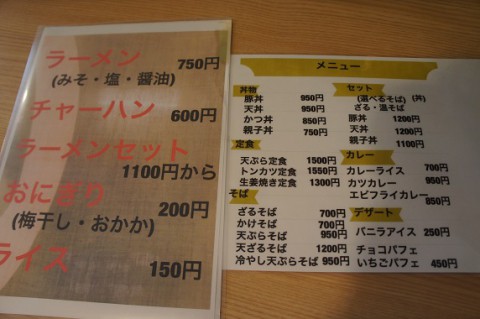 ラーメン 750円
(みそ・塩・醤油)
チャーハン 600円
ラーメンセット
1100円から
おにぎり 200円
(梅干し・おかか)
ライス 150円
メニュー
丼物
豚丼 950円
天丼 950円
かつ丼 850円
親子丼 750円
定食
天ぷら定食 1500円
トンカツ定食 1550円
生姜焼き定食 1300円
そば
ざるそば 700円
かけそば 700円
天ぷらそば 950円
天ざるそば 1200円
冷やし天ぷらそば 950円
セット
(選べるそば) (丼)
ざる・温そば
豚丼 1200円
天丼 1200円
親子丼 1100円
カレー
カレーライス 700円
カツカレー 950円
エビフライカレー 850円
デザート
バニラアイス 250円
チョコパフェ
いちごパフェ 450円